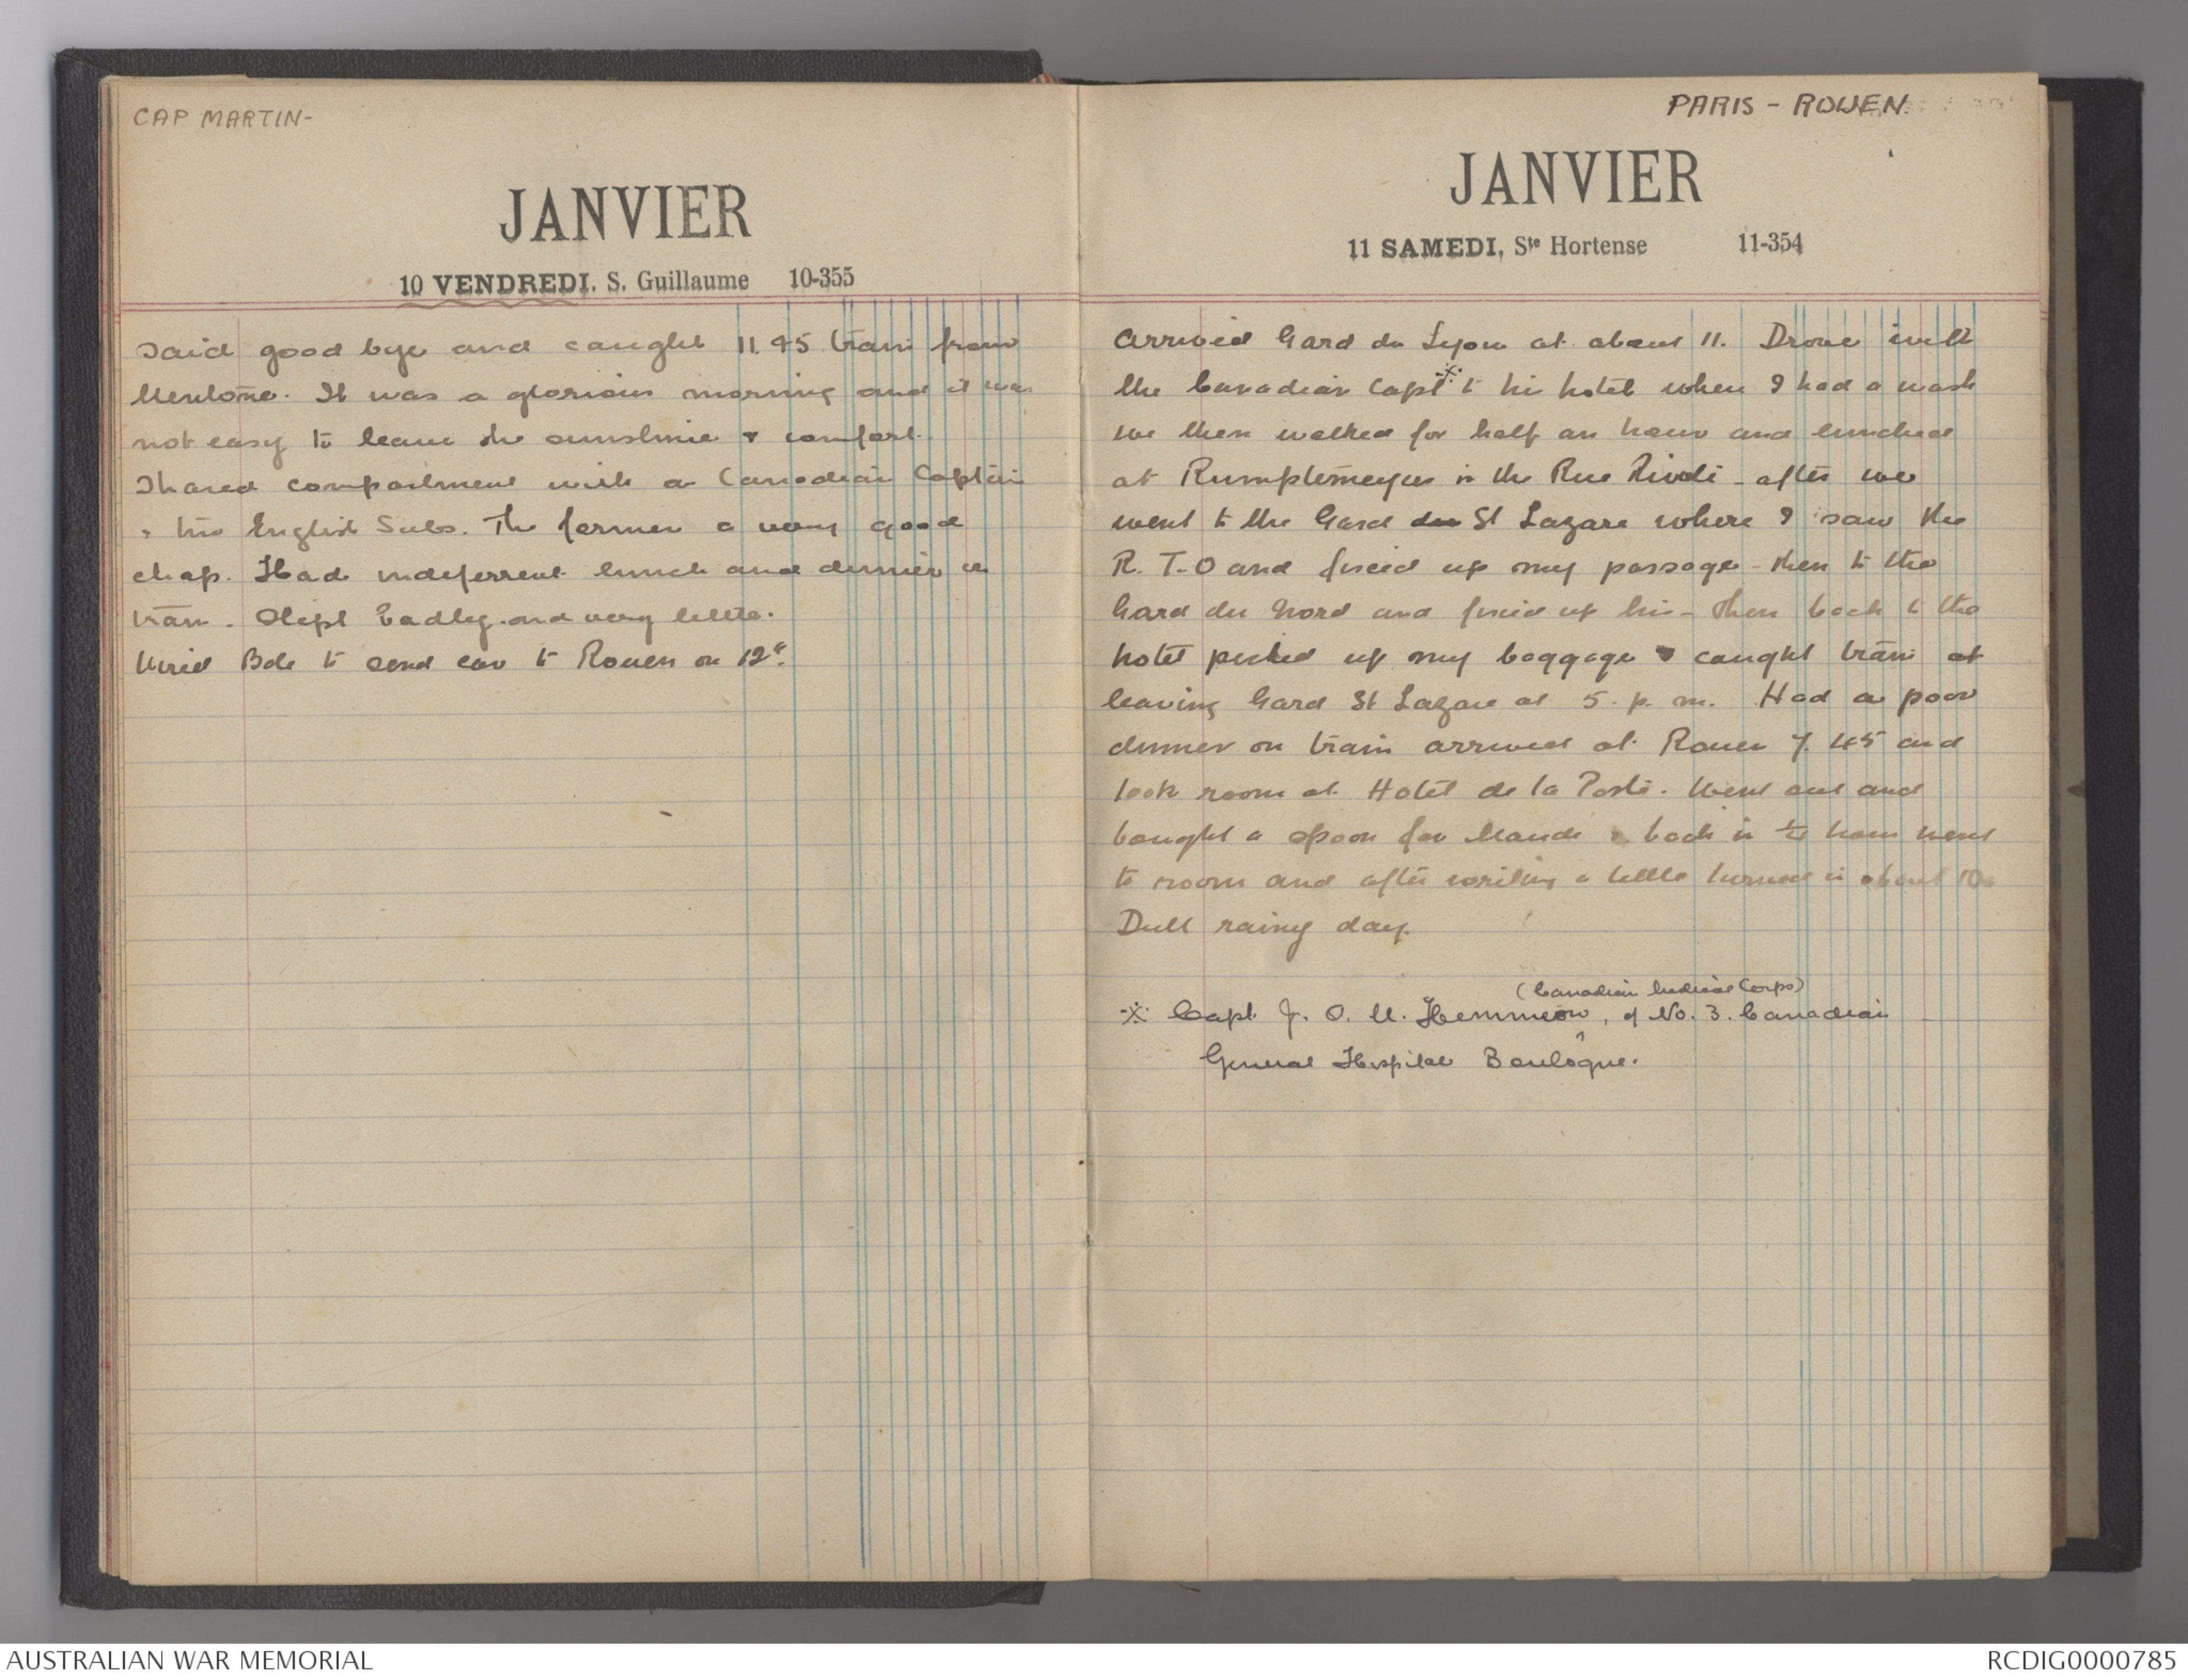 CAP MARTIN-
JANVIER
10 VENDREDI. S. Guillaume 10-355
Said good bye and caught 11.45 train from
Mentone. It was a glorious morning and it was
not easy to leave the sunshine & comfort.
Shared compartment with a Canadian Captain
& two English Subs. The former a very good
chap. Had indeferrent lunch and dinner on
train. Slept badly and very little.
Wired Bde to send car to Rouen on 12th.
PARIS - ROUEN.
JANVIER
11 SAMEDI, Ste Hortense 11-354
Arrived Gard du Lyon at about 11. Drove with
the Canadian Capt※ to his hotel where I had a wash
we then walked for half an hour and lunched
at Rumplemeyers in the Rue Rivoli - after we
went to the Gard du St Lazare where I saw the
R.T.O and fixed up my passage - then to the
Gard du Nord and fixed up his - then back to the
hotel picked up my baggage & caught train at
leaving Gard St Lazare at 5. p. m. Had a poor
dinner on train arrived at Rouen 7.45 and
took room at Hotel de la Poste. Went out and
bought a spoon for Maude & back in ½ hour went
to room and after writing a little turned in about 10
Dull rainy day.
(Canadian Medical Corps)
※ Capt J. O. U. Hemmeon, of No. 3. Canadian
General Hospital Boulogne.
AUSTRALIAN WAR MEMORIAL
RCDIG0000785